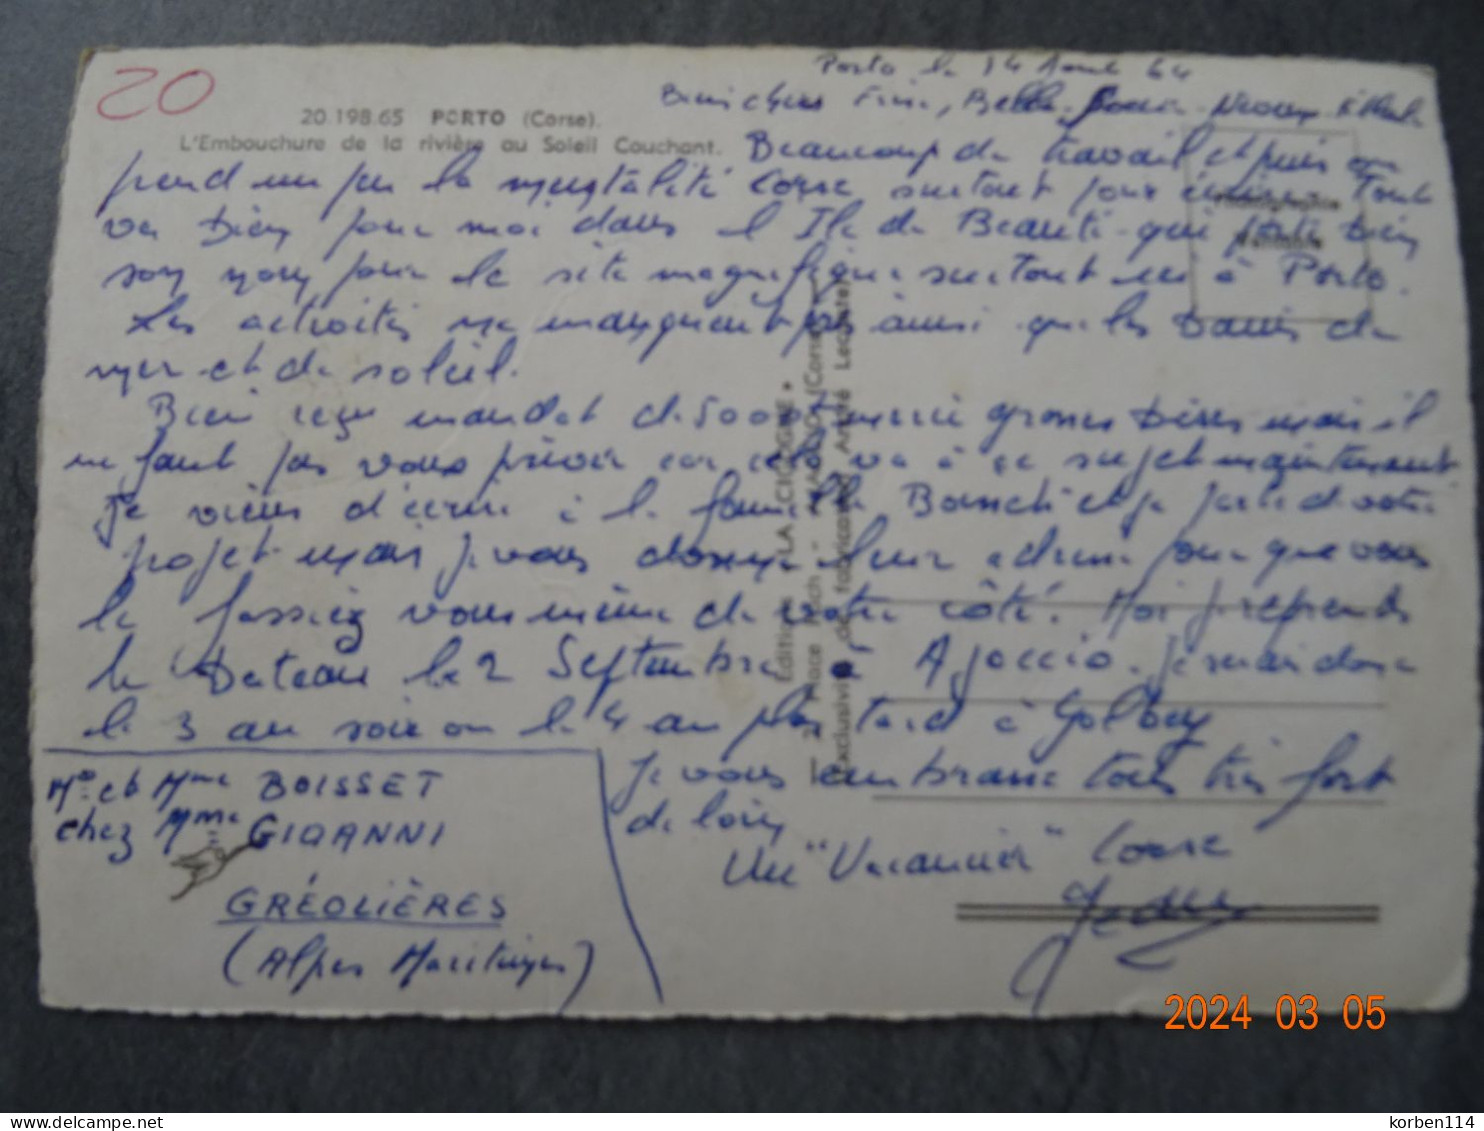 20
Porto le 14 Aout 64
20.198.65 PORTO (Corse).
L'Embouchure de la rivière au Soleil Couchant.
Beaucoup de travail et puis on
prend un peu la mentalité Corse surtout pour écrire. Tout
va bien pour moi dans l'Ile de Beauté qui porte bien
son nom pour le site magnifique surtout ici à Porto.
Les activités ne manquent pas ainsi que les bains de
mer et de soleil.
Bien reçu mandat de 5000 merci grosses bises mais il
ne faut pas vous priver car cela va à ce sujet maintenant
Je viens d'écrire à la famille Bianchi et je parle de votre
projet mais je vous donne leur adresse pour que vous
le fassiez vous même de votre côté. Moi je reprends
le bateau le 2 Septembre à Ajaccio. Je serai donc
le 3 au soir ou le 4 au plus tard à Golbey
Je vous embrasse tous très fort
de loin
Un "Vacancier" Corse
Jean
Mr et Mme BOISSET
chez Mme GIOANNI
GRÉOLIÈRES
(Alpes Maritimes)
Editions "LA CIGOGNE"
2, Place Foch - AJACCIO (Corse)
Exclusivité de fabrication André Leconte
Véritable
2024 03 05
delcampe.net
korben114